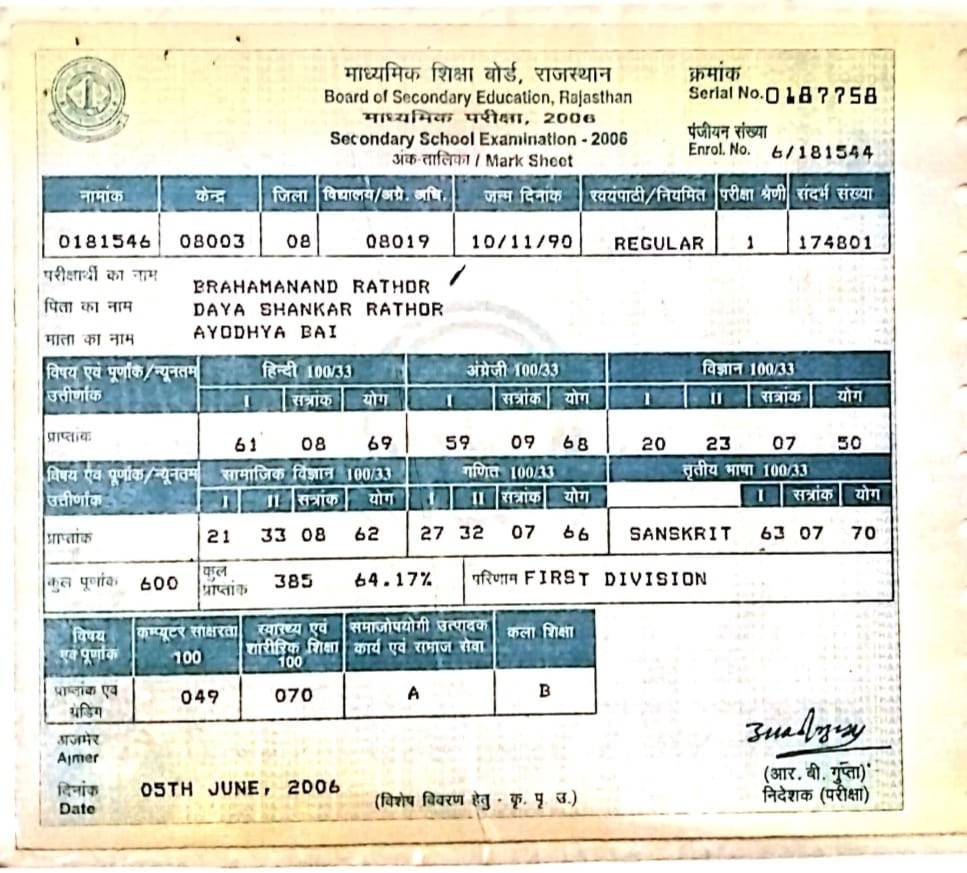 माध्यमिक शिक्षा बोर्ड, राजस्थान
Board of Secondary Education, Rajasthan
माध्यमिक परीक्षा, 2006
Secondary School Examination - 2006
अंक-तालिका / Mark Sheet
क्रमांक
Serial No. 0187758
पंजीयन संख्या
Enrol. No. 6/181544
नामांक केन्द्र जिला विद्यालय/अग्रे. अधि. जन्म दिनांक स्वयंपाठी/नियमित परीक्षा श्रेणी संदर्भ संख्या
0181546 08003 08 08019 10/11/90 REGULAR 1 174801
परीक्षार्थी का नाम BRAHAMANAND RATHOR
पिता का नाम DAYA SHANKAR RATHOR
माता का नाम AYODHYA BAI
विषय एवं पूर्णांक/न्यूनतम हिन्दी 100/33 अंग्रेजी 100/33 विज्ञान 100/33
उत्तीर्णांक I सत्रांक योग I सत्रांक योग I II सत्रांक योग
प्राप्तांक 61 08 69 59 09 68 20 23 07 50
विषय एवं पूर्णांक/न्यूनतम सामाजिक विज्ञान 100/33 गणित 100/33 तृतीय भाषा 100/33
उत्तीर्णांक I II सत्रांक योग I II सत्रांक योग I सत्रांक योग
प्राप्तांक 21 33 08 62 27 32 07 66 SANSKRIT 63 07 70
कुल पूर्णांक 600 कुल प्राप्तांक 385 64.17% परिणाम FIRST DIVISION
विषय एवं पूर्णांक कम्प्यूटर साक्षरता 100 स्वास्थ्य एवं शारीरिक शिक्षा 100 समाजोपयोगी उत्पादक कार्य एवं समाज सेवा कला शिक्षा
प्राप्तांक एवं ग्रेडिंग 049 070 A B
अजमेर
Ajmer
दिनांक
Date 05TH JUNE, 2006
(विशेष विवरण हेतु - कृ. पृ. उ.)
(आर. बी. गुप्ता)
निदेशक (परीक्षा)